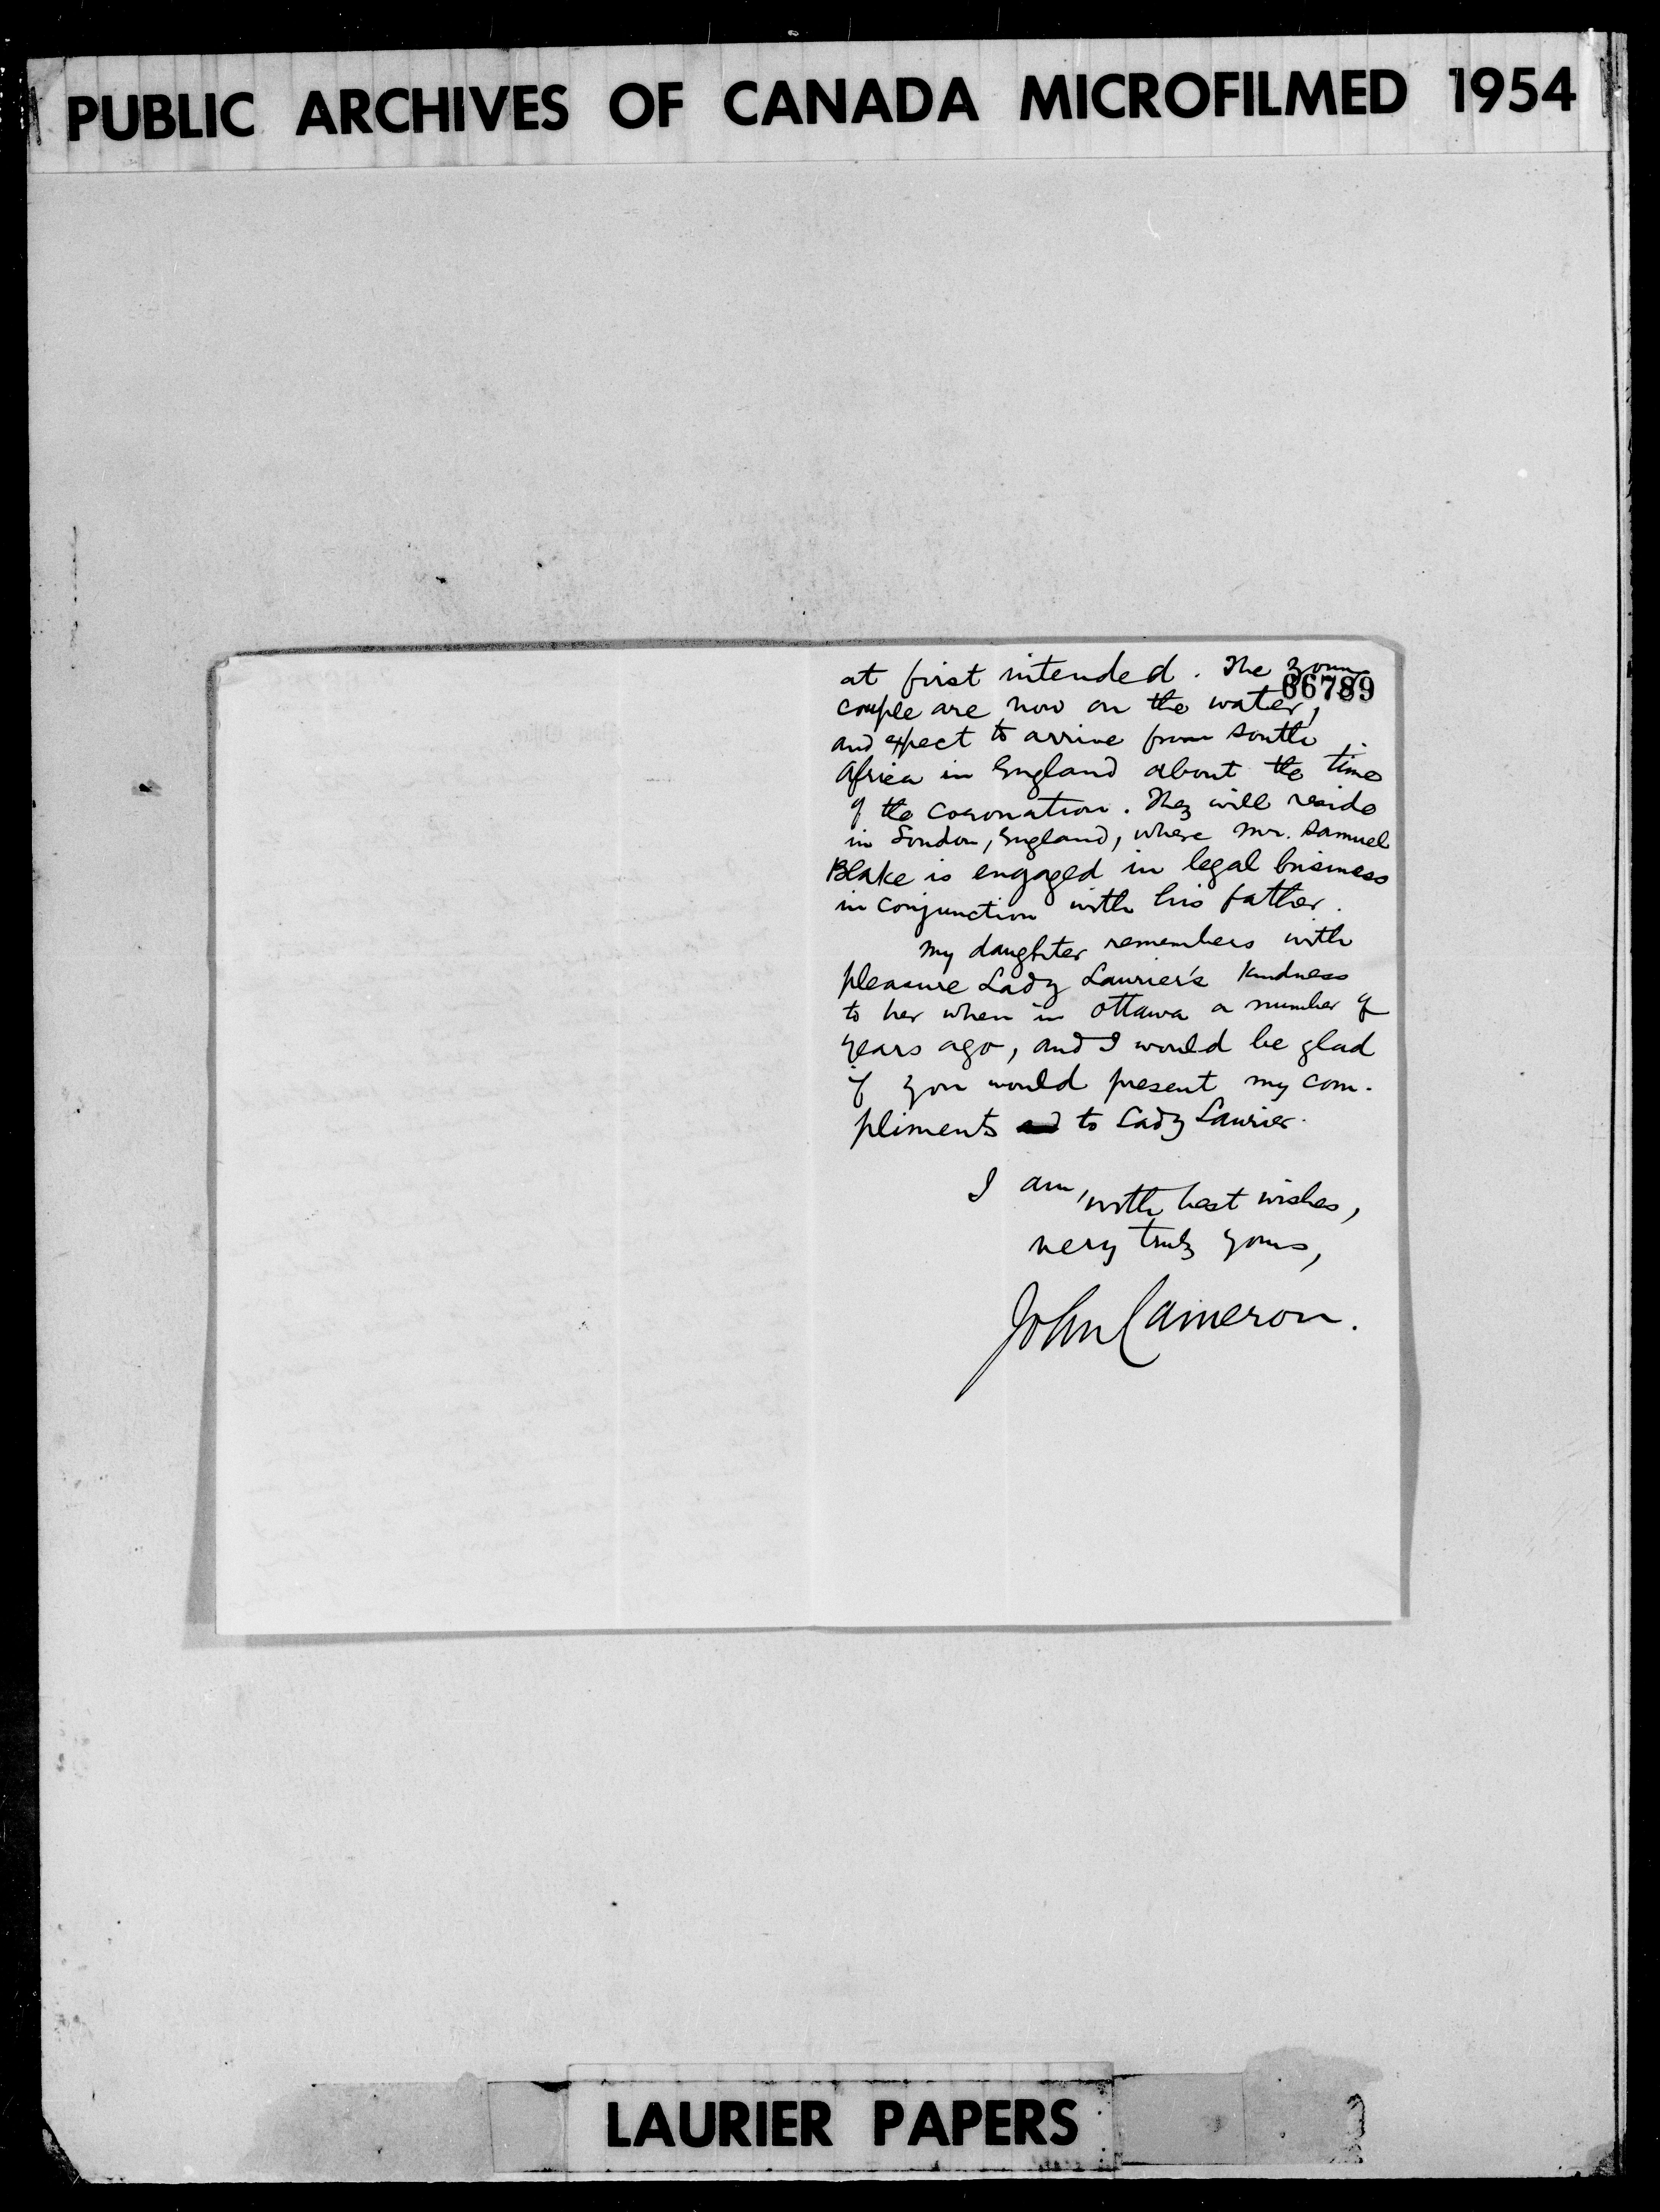 PUBLIC ARCHIVES OF CANADA MICROFILMED 1954
at first intended. The young
66789
couple are now on the water,
and expect to arrive from South
Africa in England about the time
of the coronation. They will reside
in London, England, where Mr. Samuel
Blake is engaged in legal business
in conjunction with his father.
My daughter remembers with
pleasure Lady Laurier's kindness
to her when in Ottawa a number of
years ago, and I would be glad
if you would present my com-
pliments and to Lady Laurier.
I am, with best wishes,
very truly yours,
John Cameron.
LAURIER PAPERS